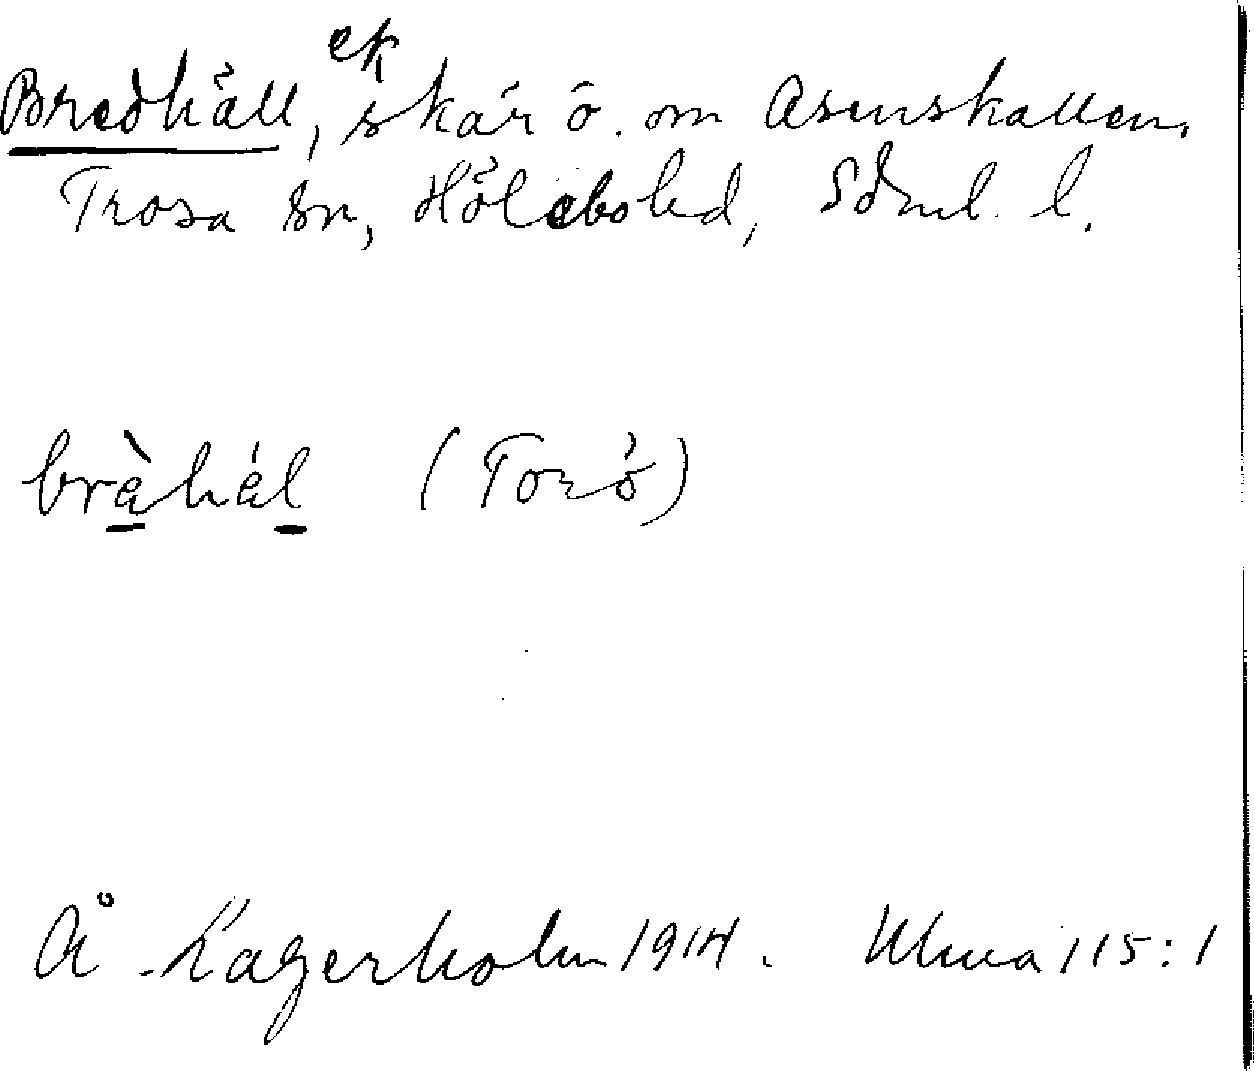 ek
Bredhäll, skär ö. om Asenskallen,
Trosa sn, Hölebo hd, Södml. l.
bràhál (Torö)
Å. Kagerholm 1914. Uluva 115:1